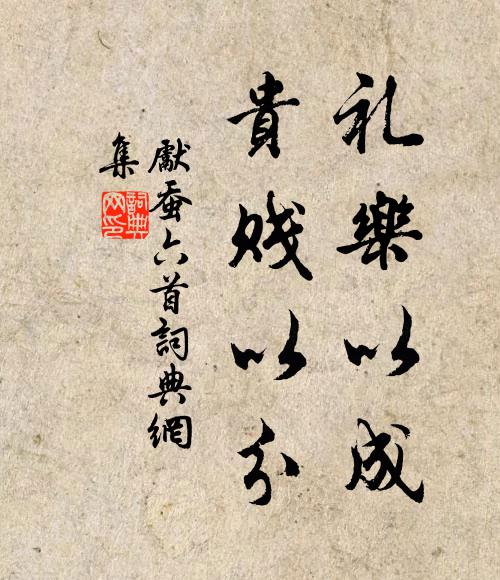 礼樂以成
貴賤以分
獻蚕六首詞典網
集
詞典網印